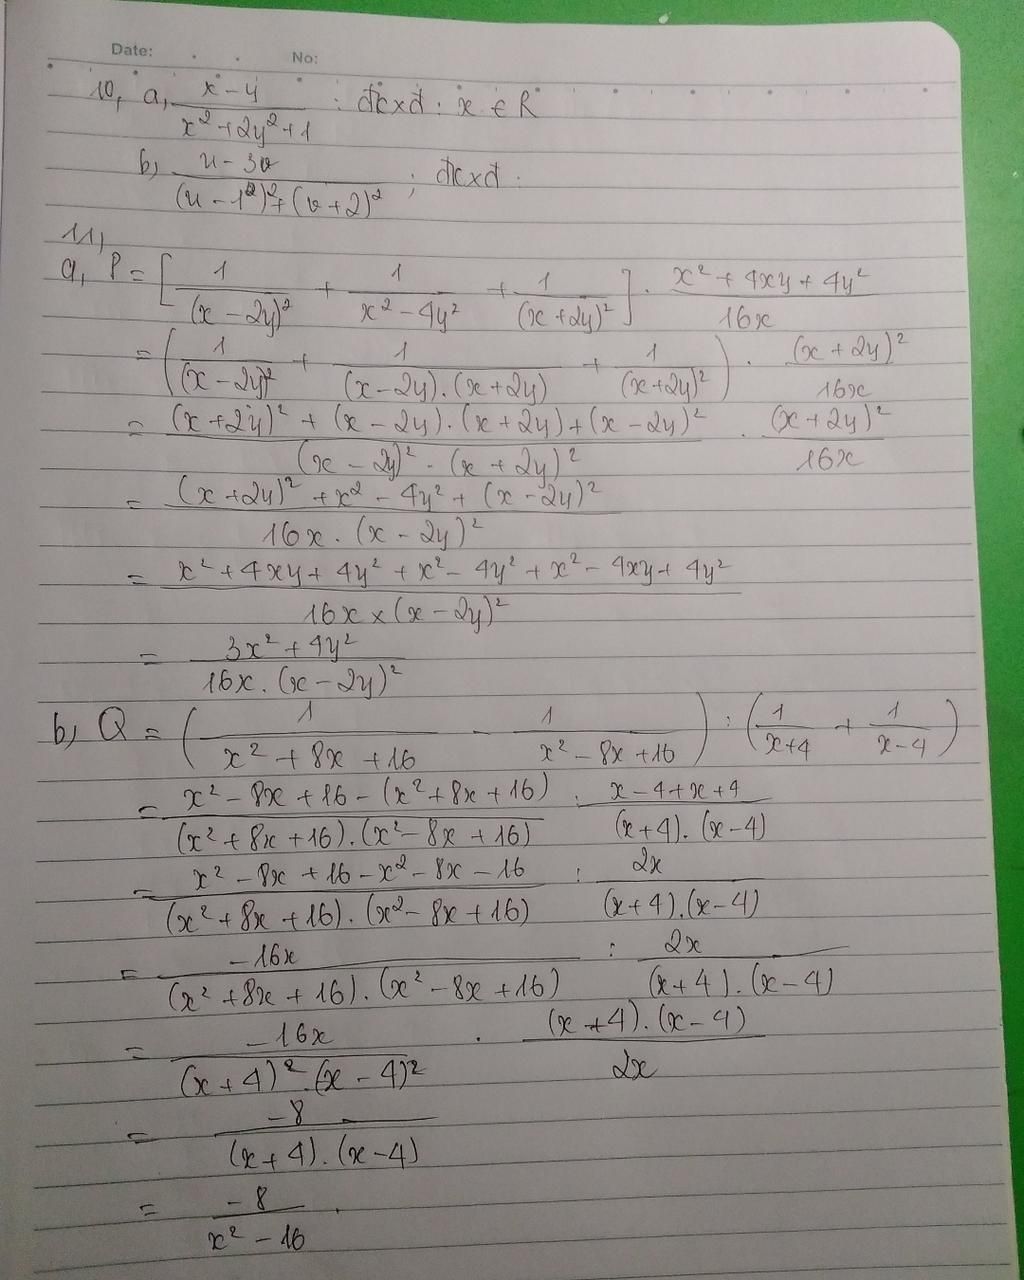 Date: No:
10, a, \frac{x-4}{x^2+2y^2+1} : đkxđ : x ∈ R
b, \frac{u-3v}{(u-1^2)^2+(v+2)^2} ; đkxđ :
11,
a, P = [\frac{1}{(x-2y)^2} + \frac{1}{x^2-4y^2} + \frac{1}{(x+2y)^2}] . \frac{x^2+4xy+4y^2}{16x}
= (\frac{1}{(x-2y)^2} + \frac{1}{(x-2y).(x+2y)} + \frac{1}{(x+2y)^2}) . \frac{(x+2y)^2}{16x}
= \frac{(x+2y)^2+(x-2y).(x+2y)+(x-2y)^2}{(x-2y)^2.(x+2y)^2} . \frac{(x+2y)^2}{16x}
= \frac{(x+2y)^2+x^2-4y^2+(x-2y)^2}{16x.(x-2y)^2}
= \frac{x^2+4xy+4y^2+x^2-4y^2+x^2-4xy+4y^2}{16x×(x-2y)^2}
= \frac{3x^2+4y^2}{16x.(x-2y)^2}
b, Q = (\frac{1}{x^2+8x+16} - \frac{1}{x^2-8x+16}) : (\frac{1}{x+4} + \frac{1}{x-4})
= \frac{x^2-8x+16-(x^2+8x+16)}{(x^2+8x+16).(x^2-8x+16)} : \frac{x-4+x+4}{(x+4).(x-4)}
= \frac{x^2-8x+16-x^2-8x-16}{(x^2+8x+16).(x^2-8x+16)} : \frac{2x}{(x+4).(x-4)}
= \frac{-16x}{(x^2+8x+16).(x^2-8x+16)} : \frac{2x}{(x+4).(x-4)}
= \frac{-16x}{(x+4)^2.(x-4)^2} . \frac{(x+4).(x-4)}{2x}
= \frac{-8}{(x+4).(x-4)}
= \frac{-8}{x^2-16} .